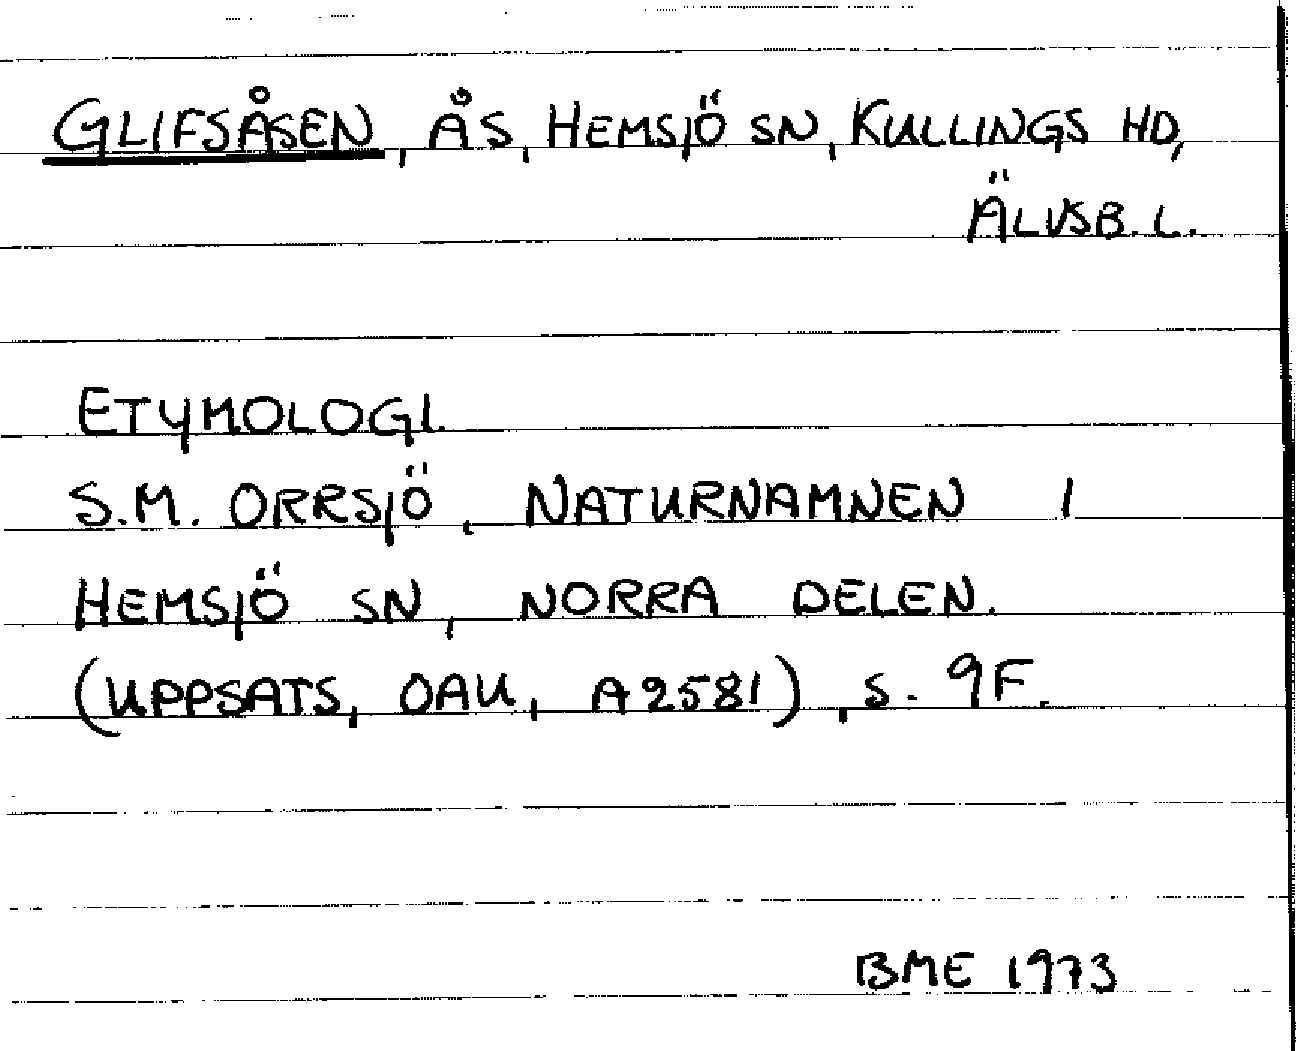 GLIFSÅSEN, ÅS, HEMSJÖ SN, KULLINGS HD,
ÄLVSB. L.
ETYMOLOGI.
S.M. ORRSJÖ, NATURNAMNEN I
HEMSJÖ SN, NORRA DELEN.
(UPPSATS, OAU, A2581), S. 9F.
BME 1973